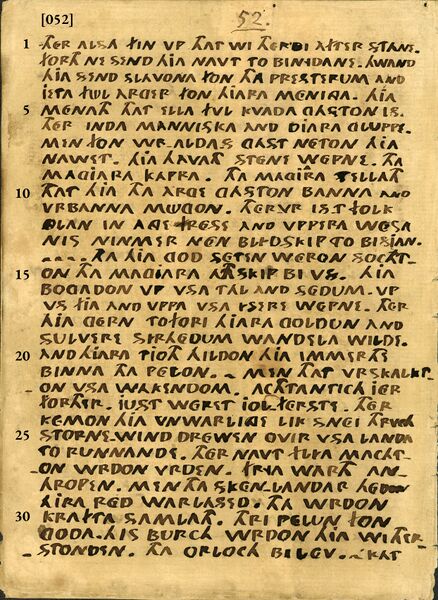 [052]
52.
1 THER ALSA FIN VP THAT WI THERDI AFTER STANE.
THOCH NE SEND HIA NAVT TO BINIDANE. HWAND
HIA SEND SLAVONA FON THA PRESTERUM AND
JETA FUL ARGER FON HIARA MENIGA. HIA
5 MENATH THAT ELLA FUL KVADA GASTON IS.
THER INDA MANNISKA AND DIARA GLUPPE.
MEN FON WR.ALDAS GAST NETON HIA
NAWET. HIA HAVATH STENE WEPNE. THA
MAGIARA KAPRA. THA MAGIARA TELLATH
10 THAT HIA THA ARGE GASTON BANNA AND
VRBANNA MUGON. THERVR IS.T FOLK
OLAN IN AGE FRESE AND VPPERA WESA
NIS NIMMER NEN BLIDSKIP TO BISJAN.
THA HIA GOD SETEN WERON SOCHT-
15 ON THA MAGIARA ATHSKIP BI VS. HIA
BOGADON VP VSA TAL AND SEDUM. VP
VS FIA AND VPPA VSA YSERE WEPNE. THER
HIA GERN TO FORI HIARA GOLDUN AND
SULVERE SIRHEDUM WANDELA WILDE.
20 AND HIARA TIOTH HILDON HIA IMMERTHE
BINNA THA PELON. MEN THAT VRSKALKT-
ON VSA WAKENDOM. ACHTANTICH JER
FORTHER. JUST WERET JOL.FERSTE. THER
KEMON HIA VNWARLINGE LIK SNEI THRVCH
25 STORNE-WIND DREWEN OVIR VSA LANDA
TO RUNNANDE. THER NAVT FLYA MACHT-
ON WRDON VRDEN. FRYA WARTH AN-
HROPEN. MEN THA SKENLANDAR HEDON
HIRA RED WARLASED. THA WRDON
30 KRAFTA SAMLATH. THRI PELUN FON
GODA.HIS BURCH WRDON HIA WITHER
STONDEN. THA ORLOCH BILEV. KAT